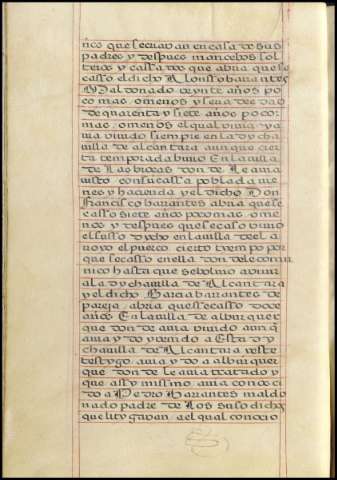 nco que se criavan en casa de sus
padres y despues mancebos sol
teros y cassados que abra que se
casso el dicho Alonsso barantes
Maldonado veynte años po
co mas o menos y sera de edad
de quarenta y siete años poco
mas o menos el qual vivia y a
via vivido siempre en la dycha
villa de alcantara aunque cier
ta temporada bivio En la villa
de Las brocas donde Le avia
visto con su cassa poblada vie
nes y hacienda y el dicho Don
Francisco barantes abra que se
casso siete años poco mas o me
nos y despues que se casso vivio
el susso dycho en la villa del a
royo el puerco cierto tyempo por
que se casso en ella donde le comu
nico hasta que se bolvio a vivir
a la dycha villa de Alcantara
y el dicho Garcia barrantes de
pareja abra que se casso doce
años En la villa de alburquer
que donde avia vivido aunq
avia ydo y venido a Esta dy
cha villa de Alcantara y este
testygo avia ydo a alburquer
que donde Le avia tratado y
que assy mismo avia conoci
do a Pedro Barrantes maldo
nado padre de Los susodichos
que litygavan a el qual conocio